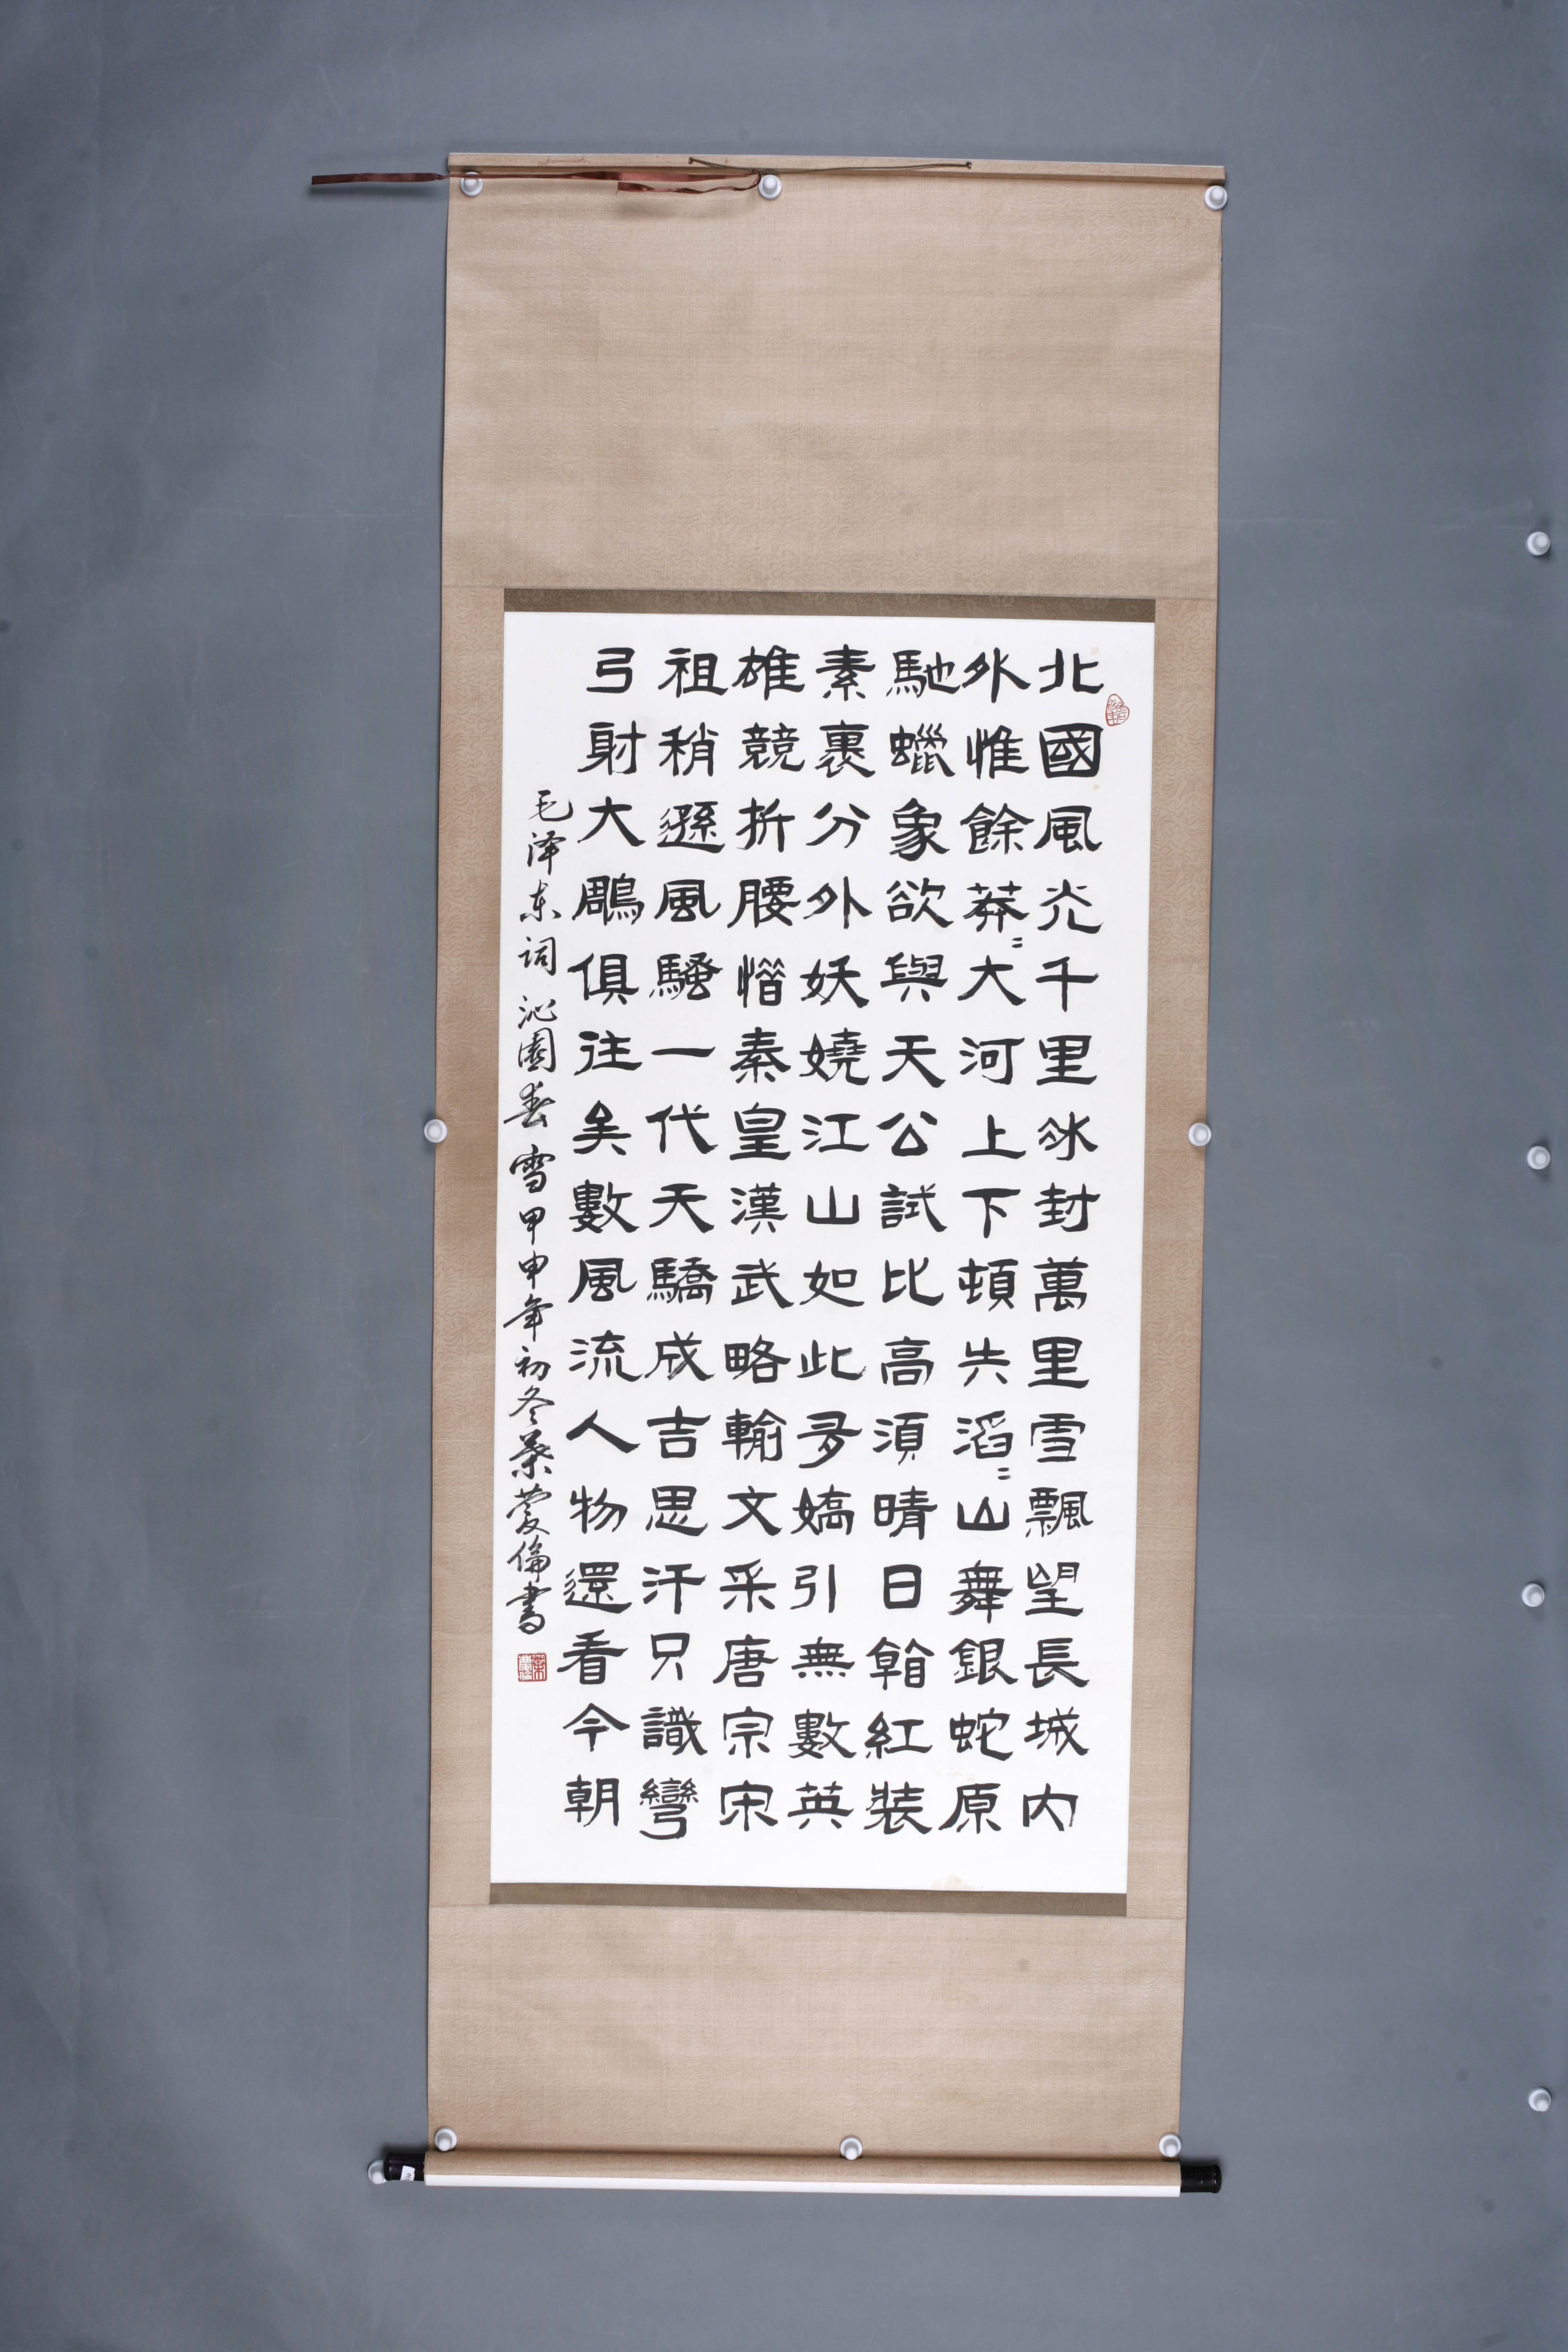 北國風光千里冰封萬里雪飄望長城內
外惟餘莽〻大河上下頓失滔〻山舞銀蛇原
馳蠟象欲與天公試比高須晴日看紅装
素裹分外妖嬈江山如此多嬌引無數英
雄競折腰惜秦皇漢武略輸文采唐宗宋
祖稍遜風騷一代天驕成吉思汗只識彎
弓射大鵰俱往矣數風流人物還看今朝
毛泽东词沁園春雪甲申年初冬葉倫書